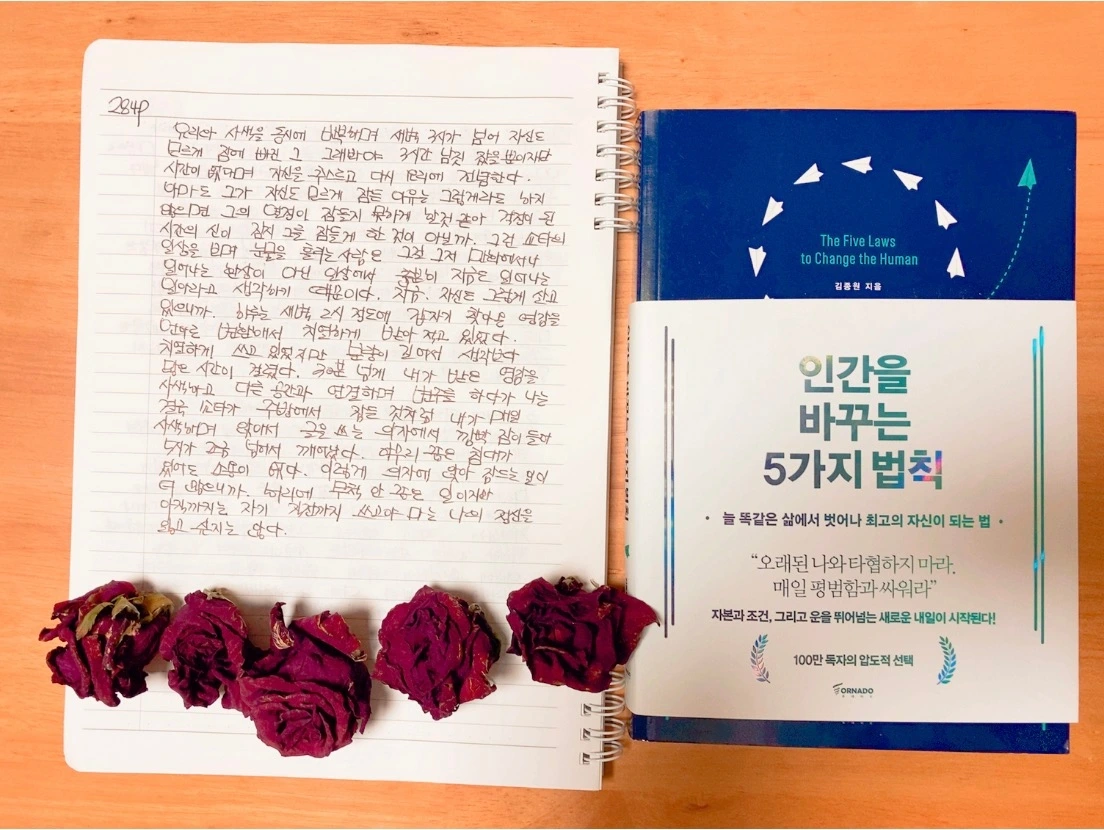 284p
요리와 사색을 동시에 반복하며 새벽 3시가 넘어 자신도
모르게 잠에 빠진 그 그래봐야 3시간 남짓 잤을 뿐이지만
시간이 없다며 자신을 추스르고 다시 요리에 전념한다.
아마도 그가 자신도 모르게 잠든 이유는 그렇게라도 하지
않으면 그의 열정이 잠들지 못하게 할것 같아 걱정이 된
시간의 신이 잠시 그를 잠들게 한 것이 아닐까. 그런 쇼타의
일상을 보며 눈물을 흘리는 사람은 그걸 그저 만화에서나
일어나는 환상이 아닌 일상에서 충분히 지금도 일어나는
일이라고 생각하기 때문이다. 지금, 자신도 그렇게 살고
있으니까. 하루는 새벽 2시 정도에 갑자기 찾아온 영감을
치열하게 받아 적고 있었다.
치열하게 쓰고 있었지만 분량이 길어서 생각보다
많은 시간이 걸렸다. 넘게 내가 받은 영감을
사색하고 다른 공간과 연결하며 반복을 하다가 나는
결국 쇼타가 주방에서 잠든 것처럼 내가 매일
사색하며 앉아서 글을 쓰는 의자에서 깜빡 잠이 들어
5시가 조금 넘어서 깨어났다. 아무리 좋은 침대가
있어도 소용이 없다. 이렇게 의자에 앉아 잠드는 날이
더 많으니까. 허리에 무척 안 좋은 일이지만
아직까지는 자기 직전까지 쓰고야 마는 나의 정신을
잃고 싶지는 않다.
The Five Laws
to Change the Human
김종원 지음
인간을
바꾸는
5가지 법칙
늘 똑같은 삶에서 벗어나 최고의 자신이 되는 법
“오래된 나와 타협하지 마라.
매일 평범함과 싸워라”
자본과 조건, 그리고 운을 뛰어넘는 새로운 내일이 시작된다!
100만 독자의 압도적 선택
TORNADO